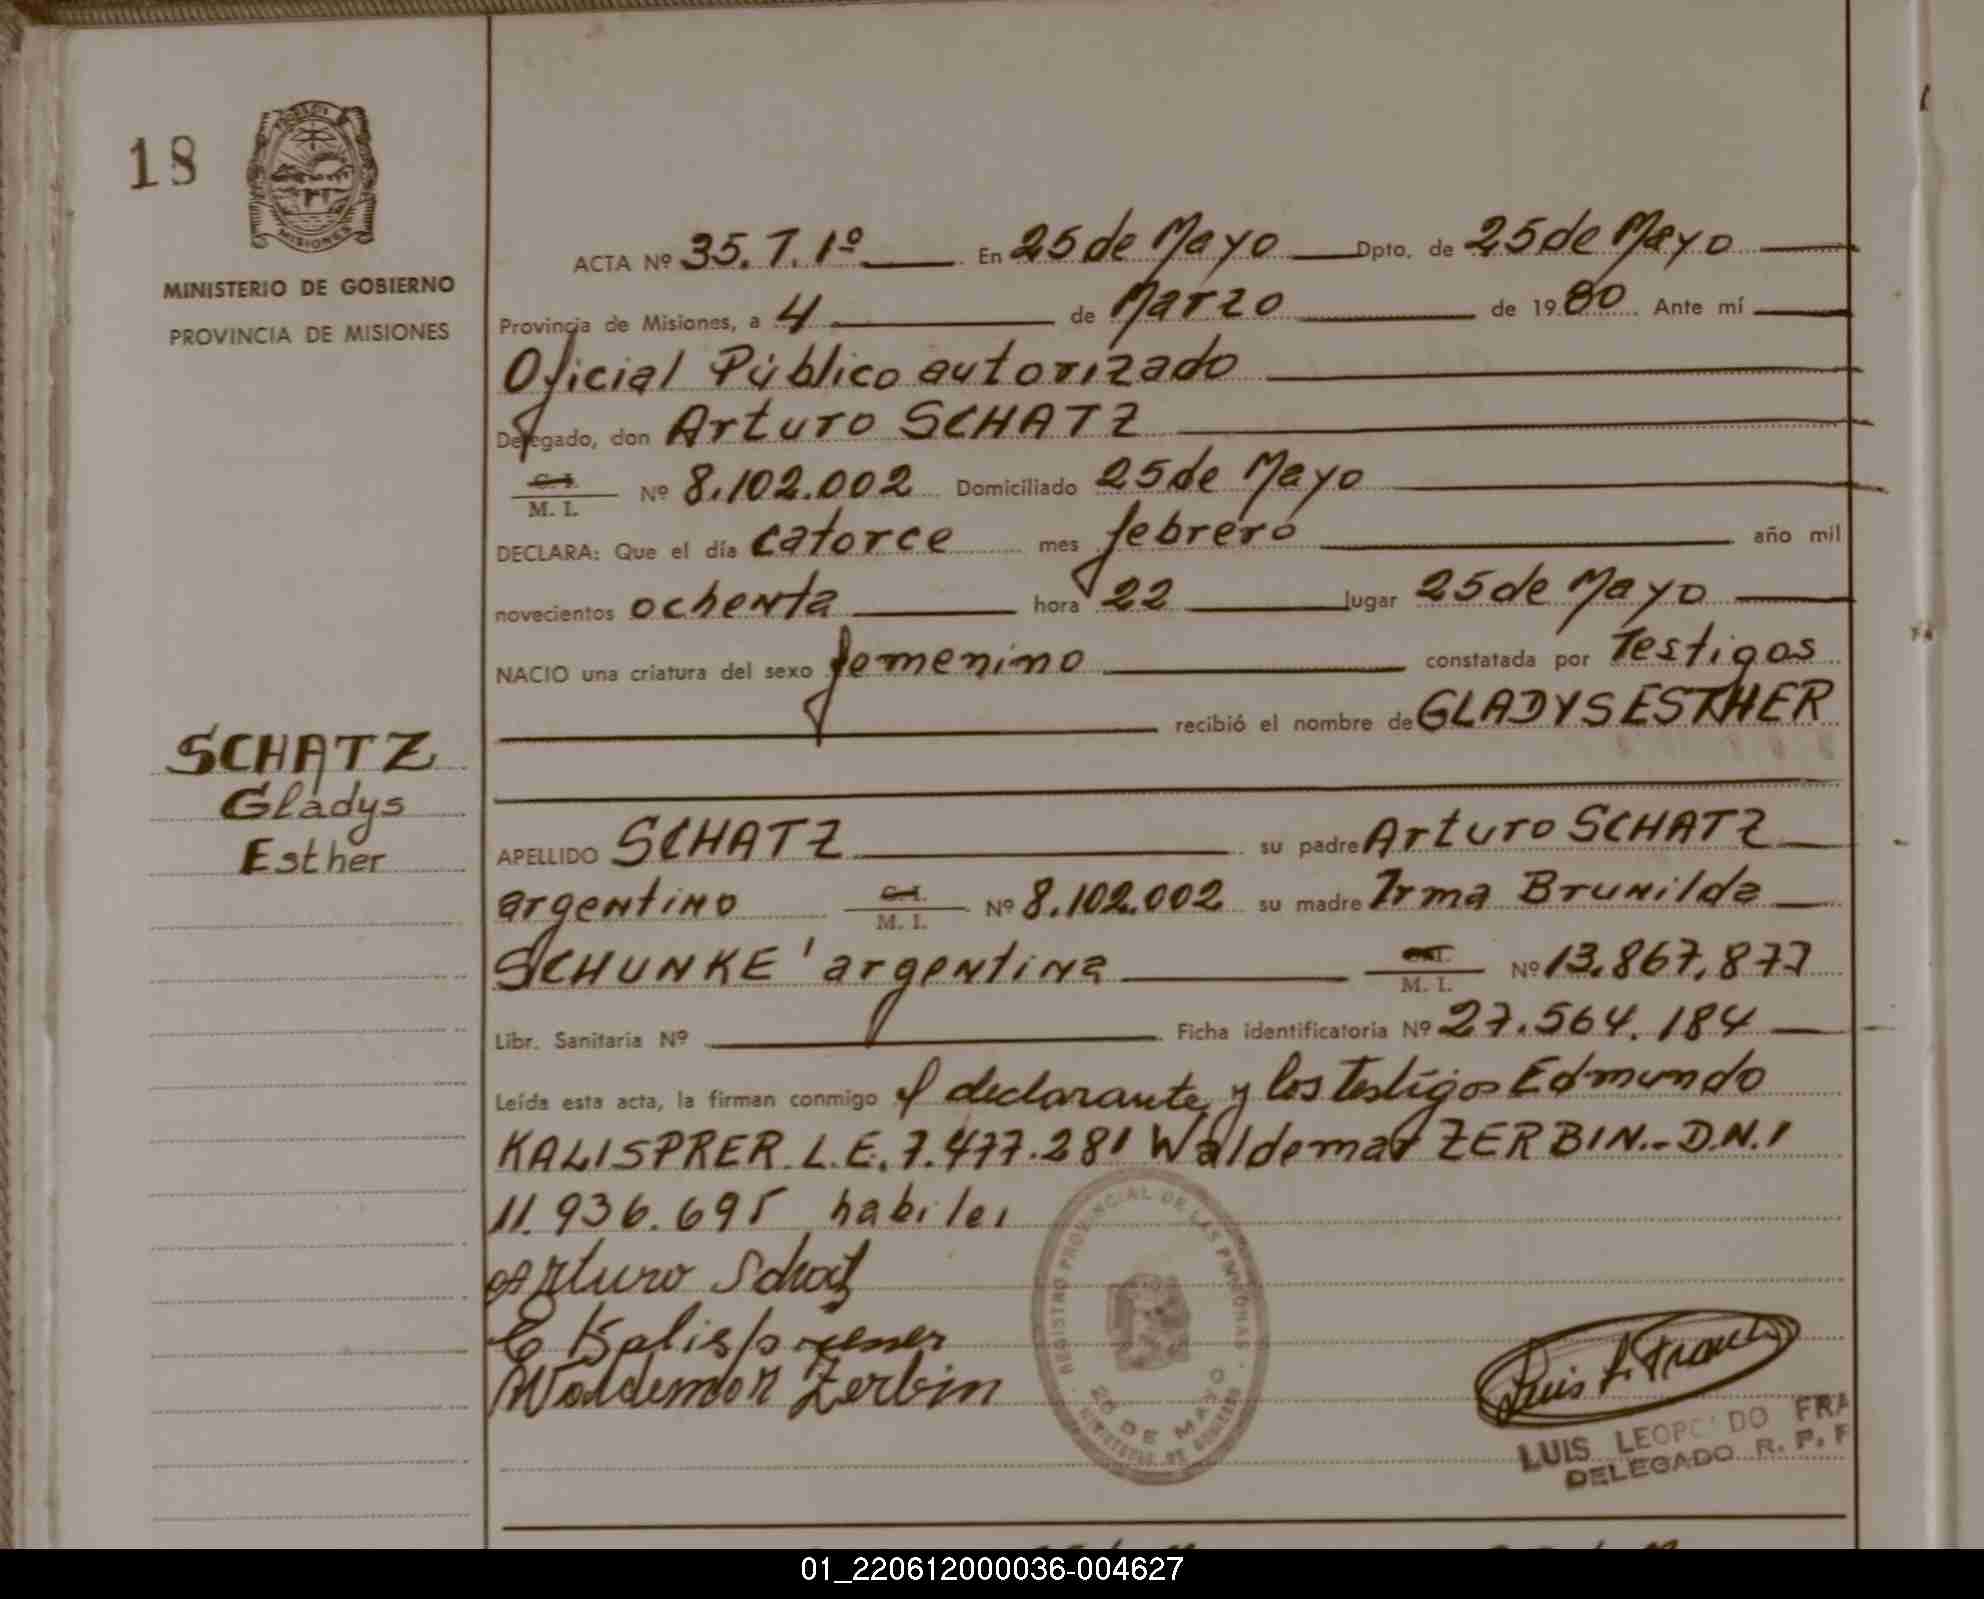 18
MISIONES
MINISTERIO DE GOBIERNO
PROVINCIA DE MISIONES
SCHATZ
Gladys
Esther
ACTA Nº 35. T. 1º En 25 de Mayo Dpto. de 25 de Mayo
Provincia de Misiones, a 4 de Marzo de 1980 Ante mí
Oficial Público autorizado
Delegado, don Arturo SCHATZ
C. I.
M. I. Nº 8.102.002 Domiciliado 25 de Mayo
DECLARA: Que el día catorce mes febrero año mil
novecientos ochenta hora 22 lugar 25 de Mayo
NACIO una criatura del sexo femenino constatada por Testigos
recibió el nombre de GLADYS ESTHER
APELLIDO SCHATZ su padre Arturo SCHATZ
argentino C. I.
M. I. Nº 8.102.002 su madre Irma Brunilda
SCHUNKE argentina M. I. Nº 13.867.877
Libr. Sanitaria Nº Ficha identificatoria Nº 27.564.184
Leída esta acta, la firman conmigo el declarante y los Testigos Edmundo
KALISPRER L.E. 7.477.281 Waldemar ZERBIN.- D.N.I
11.936.695 habiles
Arturo Schatz
E Kalisp
Waldemar Zerbin
REGISTRO PROVINCIAL DE LAS PERSONAS
25 DE MAYO
Luis L. Fran
LUIS LEOPOLDO FRA
DELEGADO R. P. P
01_220612000036-004627